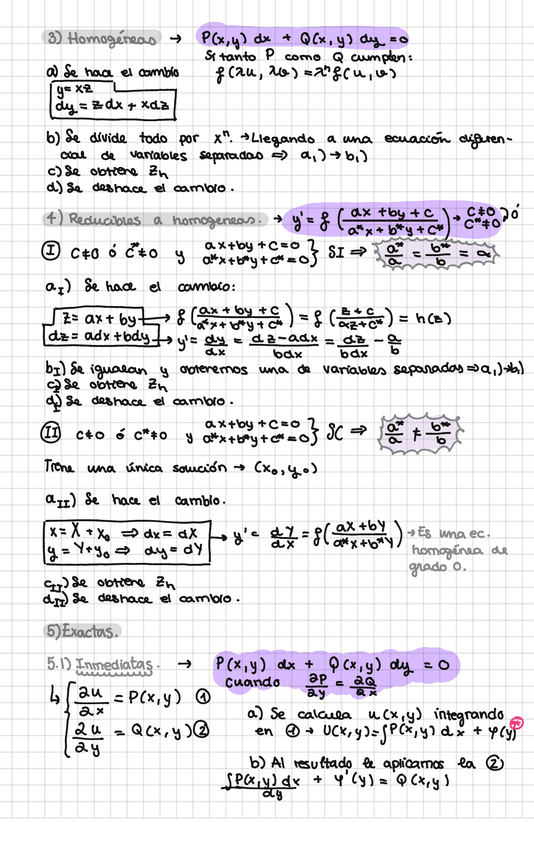 3) Homogéneas → P(x,y) dx + Q(x,y) dy = 0
Si tanto P como Q cumplen:
a) Se hace el cambio f(λu, λv) = λⁿ f(u,v)
y = xz
dy = z dx + x dz
b) Se divide todo por xⁿ. → Llegando a una ecuación diferen-
cial de variables separadas ⇒ a,) → b,)
c) Se obtiene Zh
d) Se deshace el cambio.
4) Reducibles a homogeneas. → y' = f (ax + by + c / a*x + b*y + c*) → c≠0 / c*≠0 } ó
I c≠0 ó c*≠0 y ax+by+c=0 / a*x+b*y+c*=0 } SI ⇒ a*/a = b*/b = α
a_I) Se hace el cambio:
z = ax + by → f (ax + by + c / a*x + b*y + c*) = f (z + c / αz + c*) = h(z)
dz = adx + bdy → y' = dy/dx = dz - adx / bdx = dz/bdx - a/b
b_I) Se igualan y obtenemos una de variables separadas ⇒ a,) → b,)
c_I) Se obtiene Zh
d_I) Se deshace el cambio.
II c≠0 ó c*≠0 y ax+by+c=0 / a*x+b*y+c*=0 } SC ⇒ a*/a ≠ b*/b
Tiene una única solución → (x₀, y₀)
a_II) Se hace el cambio.
x = X + x₀ ⇒ dx = dX
y = Y + y₀ ⇒ dy = dY → y' = dY/dX = f (aX + bY / a*X + b*Y) → Es una ec.
homogénea de
grado 0.
c_II) Se obtiene Zh
d_II) Se deshace el cambio.
5) Exactas.
5.1) Inmediatas. → P(x,y) dx + Q(x,y) dy = 0
cuando ∂P/∂y = ∂Q/∂x
↳ { ∂u/∂x = P(x,y) ①
∂u/∂y = Q(x,y) ②
a) Se calcula u(x,y) integrando
en ① → U(x,y) = ∫P(x,y) dx + φ(y)
b) Al resultado le aplicamos la ②
∫P(x,y) dx / dy + φ'(y) = Q(x,y)